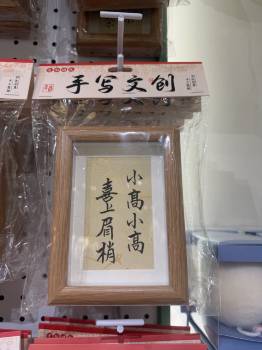 手写文创
小髙小髙
喜上眉梢